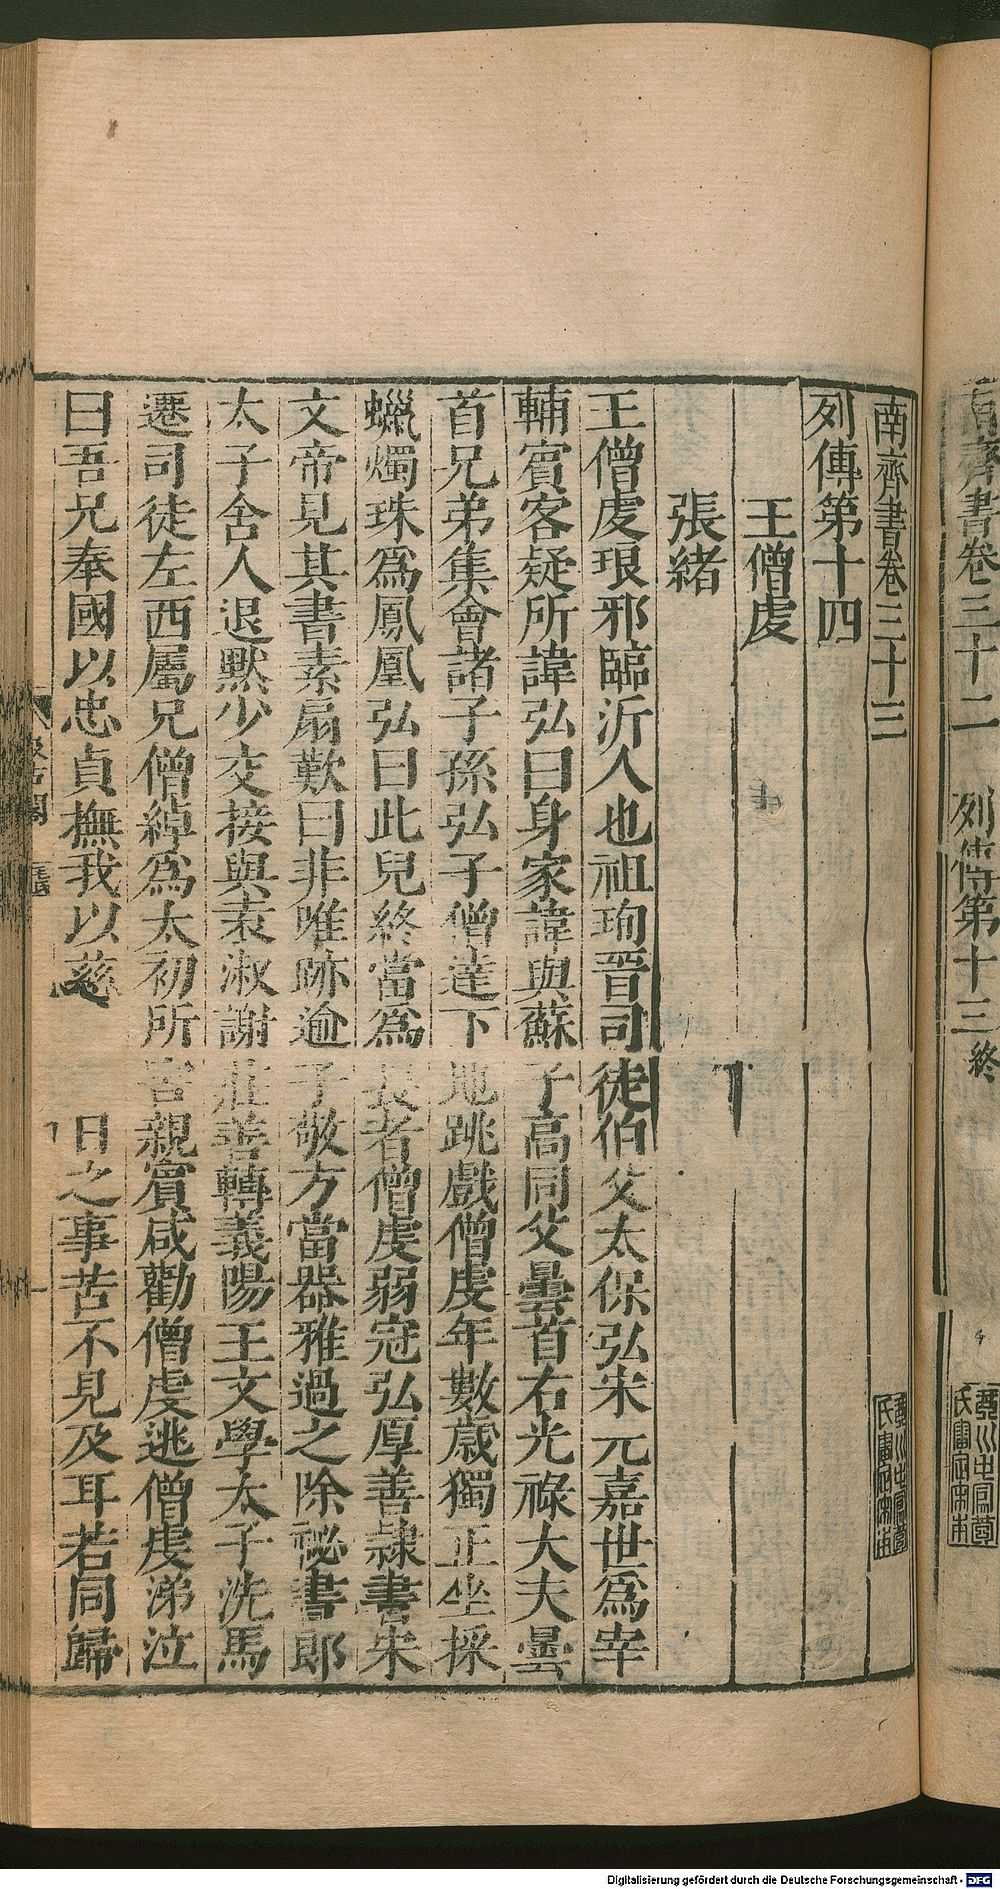 南齊書卷三十二 列傳第十三終
南齊書卷三十三
列傳第十四
王僧虔
張緒
王僧虔琅邪臨沂人也祖珣晉司徒伯父太保弘宋元嘉世爲宰
輔賓客疑所諱弘曰身家諱與蘇子高同父曇首右光祿大夫曇
首兄弟集會諸子孫弘子僧達下地跳戲僧虔年數歲獨正坐採
蠟燭珠爲鳳凰弘曰此兒終當爲長者僧虔弱冠弘厚善隷書宋
文帝見其書素扇歎曰非唯跡逾子敬方當器雅過之除祕書郎
太子舍人退默少交接與袁淑謝莊善轉義陽王文學太子洗馬
遷司徒左西屬兄僧綽爲太初所害親賓咸勸僧虔逃僧虔涕泣
曰吾兄奉國以忠貞撫我以慈 日之事苦不見及耳若同歸
Digitalisierung gefördert durch die Deutsche Forschungsgemeinschaft - DFG